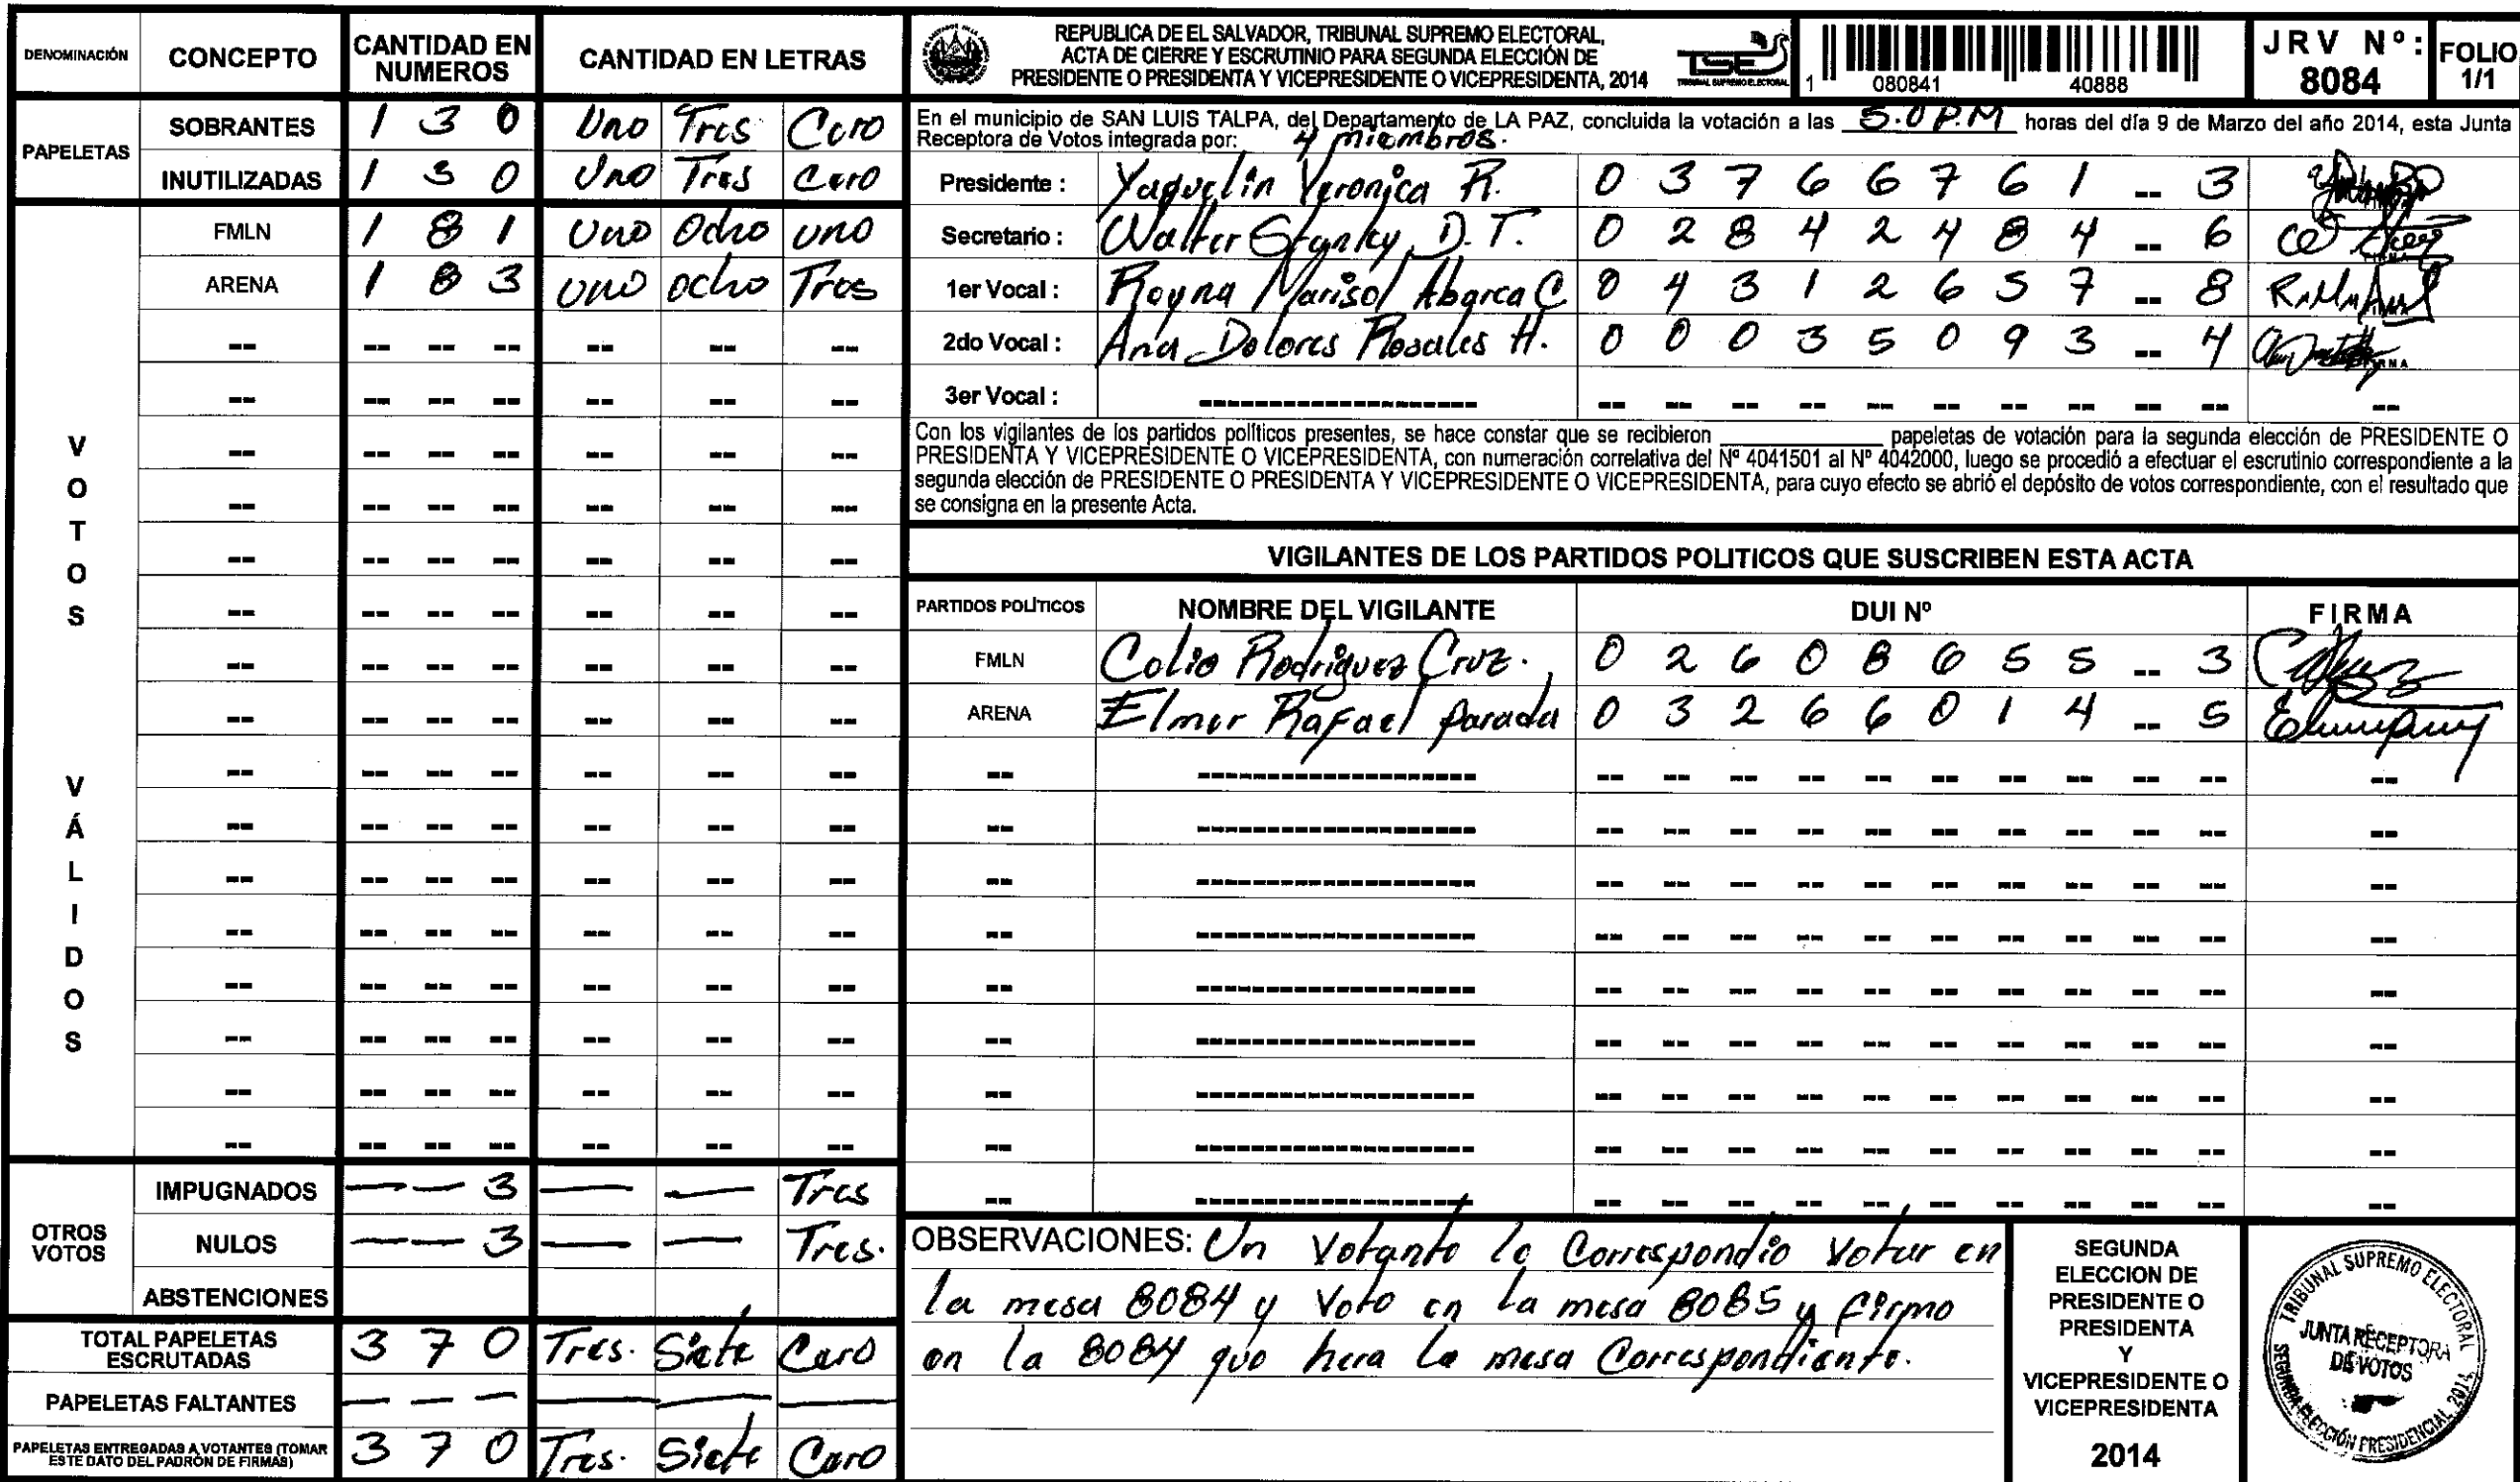 DENOMINACIÓN CONCEPTO CANTIDAD EN NUMEROS CANTIDAD EN LETRAS
PAPELETAS
SOBRANTES 1 3 0 Uno Tres Cero
INUTILIZADAS 1 3 0 Uno Tres Cero
VOTOS VÁLIDOS
FMLN 1 8 1 Uno Ocho uno
ARENA 1 8 3 uno ocho Tres
OTROS VOTOS
IMPUGNADOS — — 3 — — Tres
NULOS — — 3 — — Tres.
ABSTENCIONES
TOTAL PAPELETAS ESCRUTADAS 3 7 0 Tres. Siete Cero
PAPELETAS FALTANTES — — — — — —
PAPELETAS ENTREGADAS A VOTANTES (TOMAR ESTE DATO DEL PADRÓN DE FIRMAS) 3 7 0 Tres. Siete Cero
REPUBLICA DE EL SALVADOR, TRIBUNAL SUPREMO ELECTORAL,
ACTA DE CIERRE Y ESCRUTINIO PARA SEGUNDA ELECCIÓN DE
PRESIDENTE O PRESIDENTA Y VICEPRESIDENTE O VICEPRESIDENTA, 2014
TSE
TRIBUNAL SUPREMO ELECTORAL
1 080841 40888
JRV Nº: 8084
FOLIO 1/1
En el municipio de SAN LUIS TALPA, del Departamento de LA PAZ, concluida la votación a las 5.0 P.M horas del día 9 de Marzo del año 2014, esta Junta
Receptora de Votos integrada por: 4 miembros.
Presidente : Yaquelin Veronica R. 0 3 7 6 6 7 6 1 -- 3
Secretario : Walter Stanley D. T. 0 2 8 4 2 4 8 4 -- 6
1er Vocal : Reyna Marisol Abarca C 0 4 3 1 2 6 5 7 -- 8
2do Vocal : Ana Dolores Rosales H. 0 0 0 3 5 0 9 3 -- 4
3er Vocal :
Con los vigilantes de los partidos políticos presentes, se hace constar que se recibieron ________ papeletas de votación para la segunda elección de PRESIDENTE O
PRESIDENTA Y VICEPRESIDENTE O VICEPRESIDENTA, con numeración correlativa del Nº 4041501 al Nº 4042000, luego se procedió a efectuar el escrutinio correspondiente a la
segunda elección de PRESIDENTE O PRESIDENTA Y VICEPRESIDENTE O VICEPRESIDENTA, para cuyo efecto se abrió el depósito de votos correspondiente, con el resultado que
se consigna en la presente Acta.
VIGILANTES DE LOS PARTIDOS POLITICOS QUE SUSCRIBEN ESTA ACTA
PARTIDOS POLÍTICOS NOMBRE DEL VIGILANTE DUI Nº FIRMA
FMLN Celio Rodriguez Cruz. 0 2 6 0 8 6 5 5 -- 3
ARENA Elmer Rafael parada 0 3 2 6 6 0 1 4 -- 5
OBSERVACIONES: Un Votante le Correspondio Votar en
la mesa 8084 y Voto en la mesa 8085 y firmo
en la 8084 que hera la mesa Correspondiente.
SEGUNDA
ELECCION DE
PRESIDENTE O
PRESIDENTA
Y
VICEPRESIDENTE O
VICEPRESIDENTA
2014
TRIBUNAL SUPREMO ELECTORAL
JUNTA RECEPTORA
DE VOTOS
SEGUNDA ELECCIÓN PRESIDENCIAL 2014